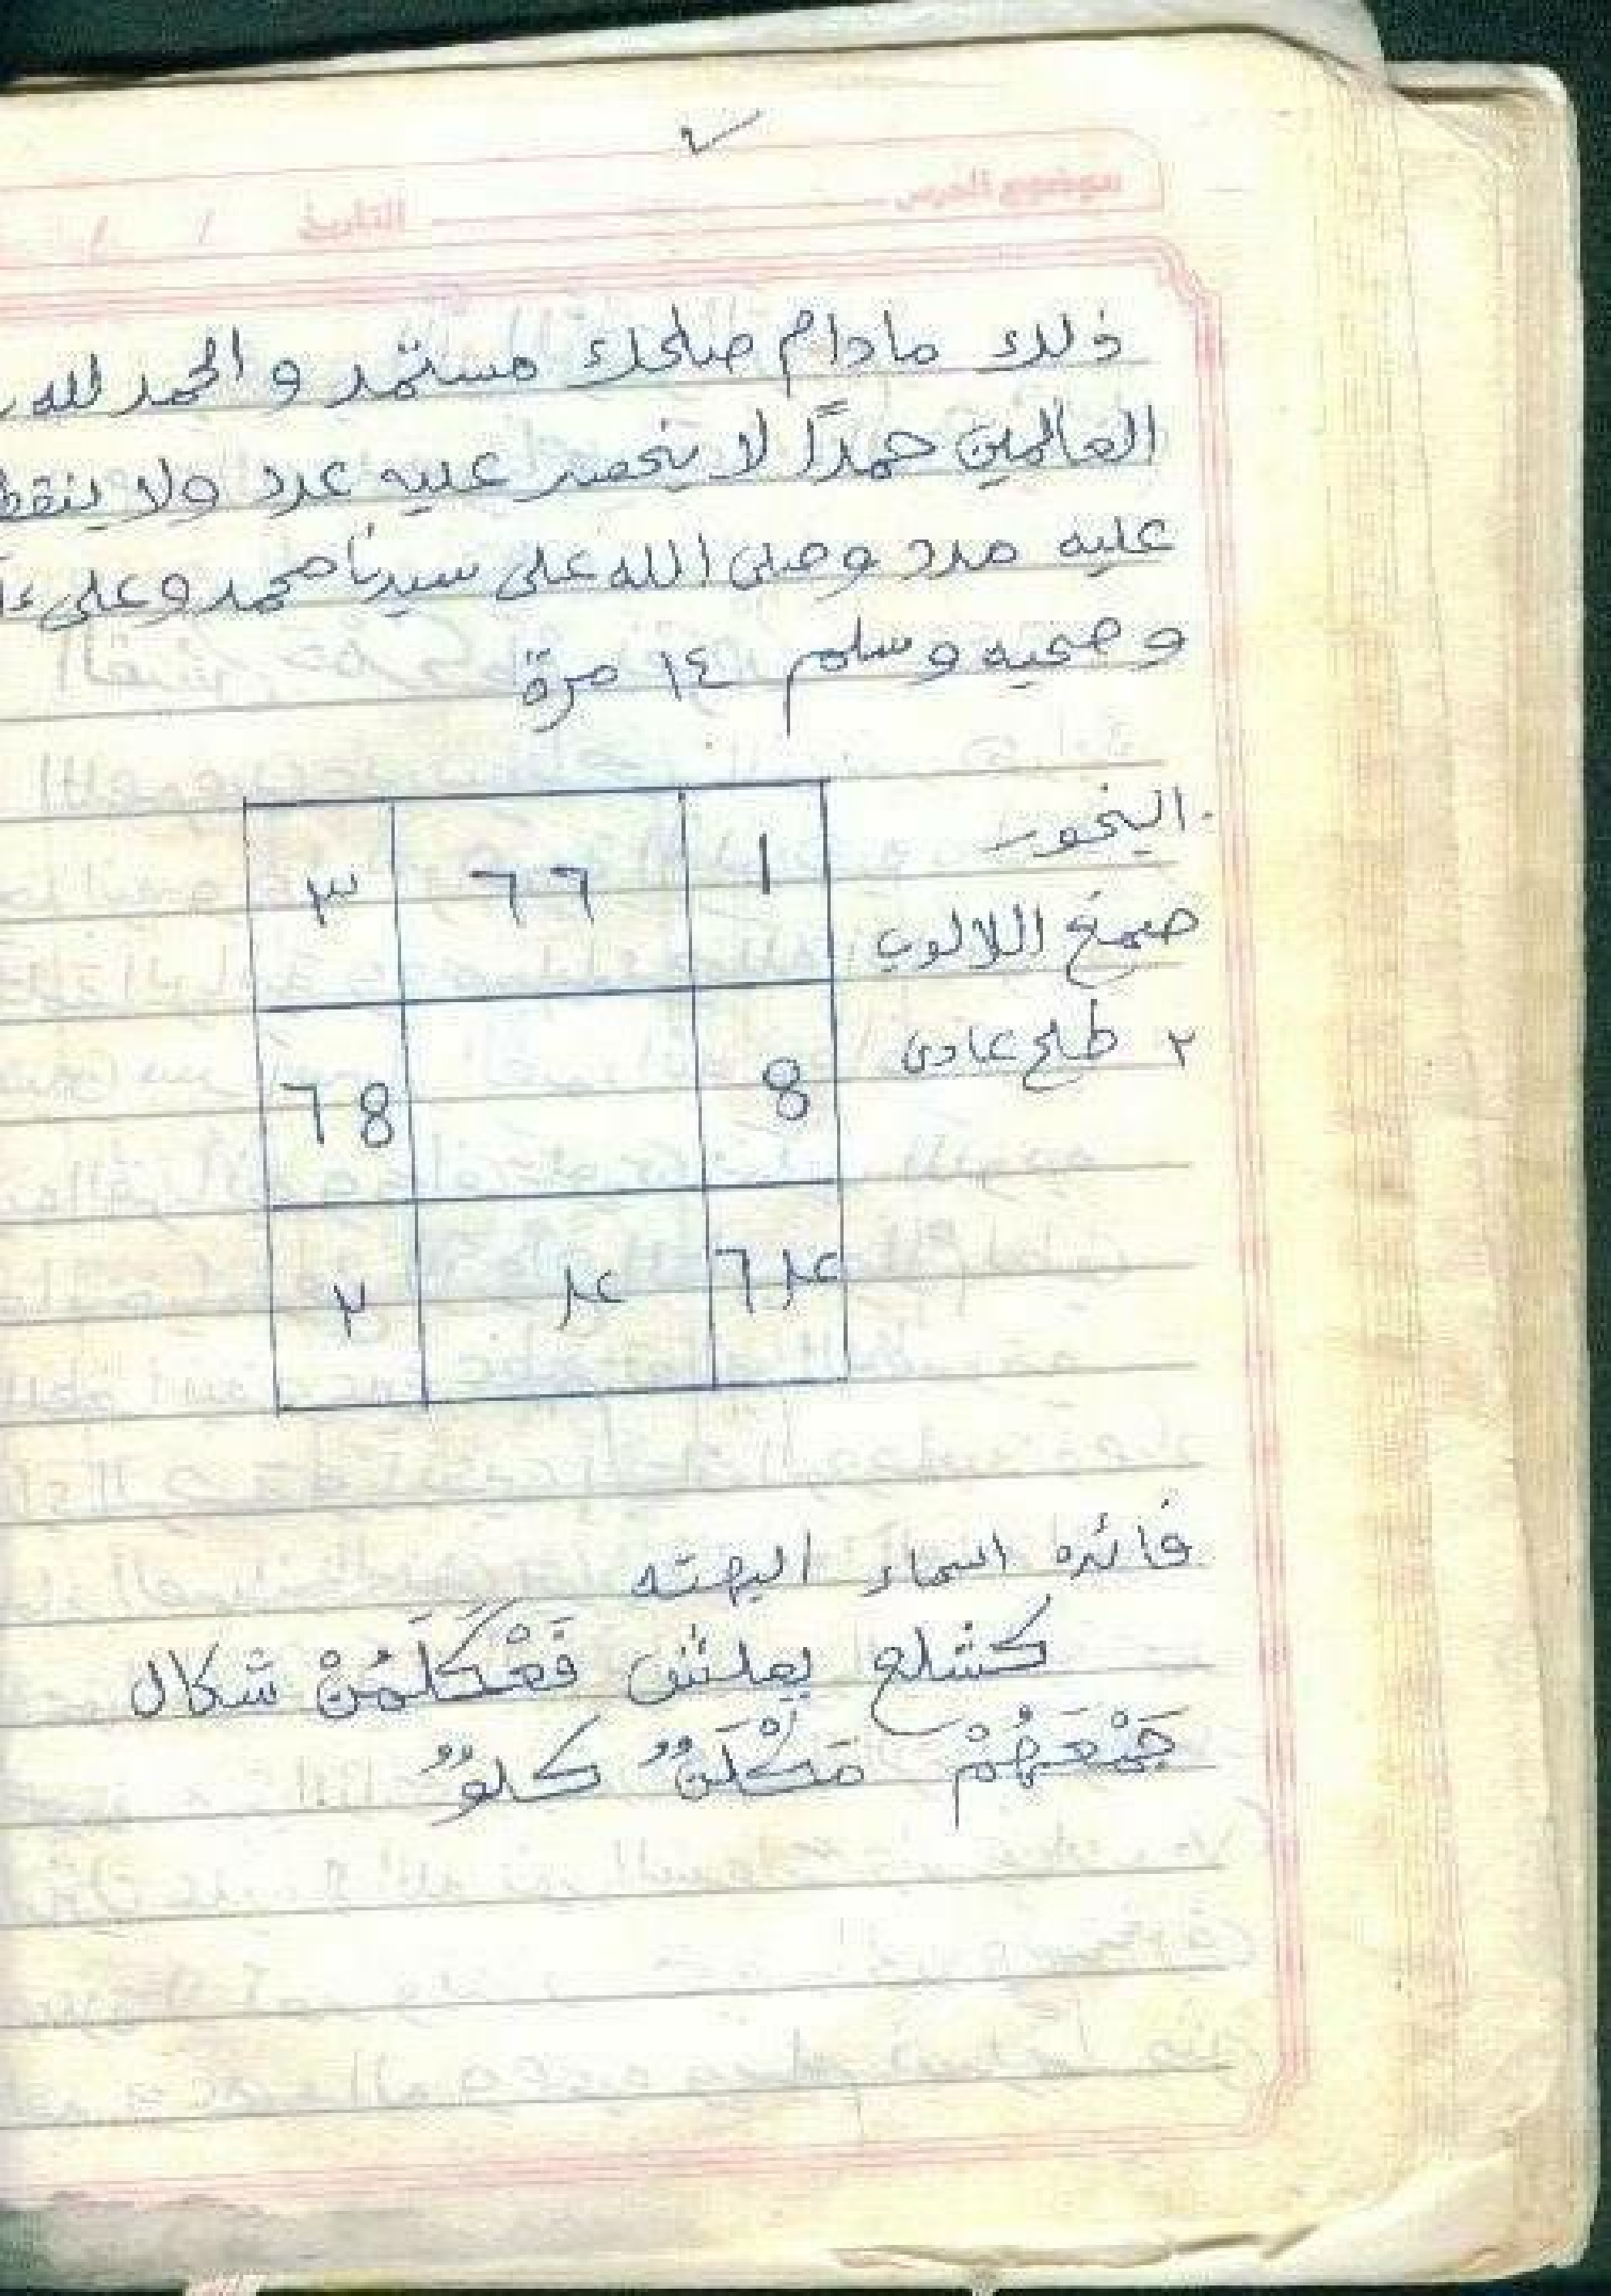 موضوع الدرس التاريخ / /
ذلك مادام صلحك مستمد والحمد لله
العالمين حمدًا لا ينحصر عليه عدد ولا ينقط
عليه مدد وصلى الله على سيدنا محمد وعلى
وصحبه وسلم ١٤ مرة
البخور
صمغ اللالوب
٢ طلح عادى
١ ٦٦ ٣
8 ٦8
٢
فائده اسماء البهته
كشلع يعلش فَعْكَلَمُنْ شكال
جَمْعَهُمْ مَكْلَنٌ كلوٌ